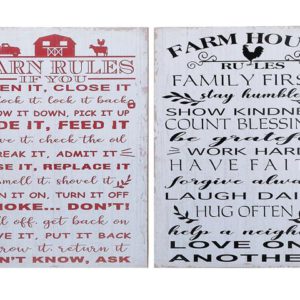 BARN RULES
IF YOU
OPEN IT, CLOSE IT
lock it, lock it back
THROW IT DOWN, PICK IT UP
RIDE IT, FEED IT
drive it, check the oil
BREAK IT, ADMIT IT
LOSE IT, REPLACE IT
smell it, shovel it
TURN IT ON, TURN IT OFF
SMOKE... DON'T!
fall off, get back on
move it, PUT IT BACK
borrow it, return it
DON'T KNOW, ASK
FARM HOUSE
RULES
FAMILY FIRST
stay humble
SHOW KINDNESS
COUNT BLESSINGS
be grateful
WORK HARD
HAVE FAITH
forgive always
LAUGH DAILY
HUG OFTEN
help a neighbor
LOVE ONE
ANOTHER